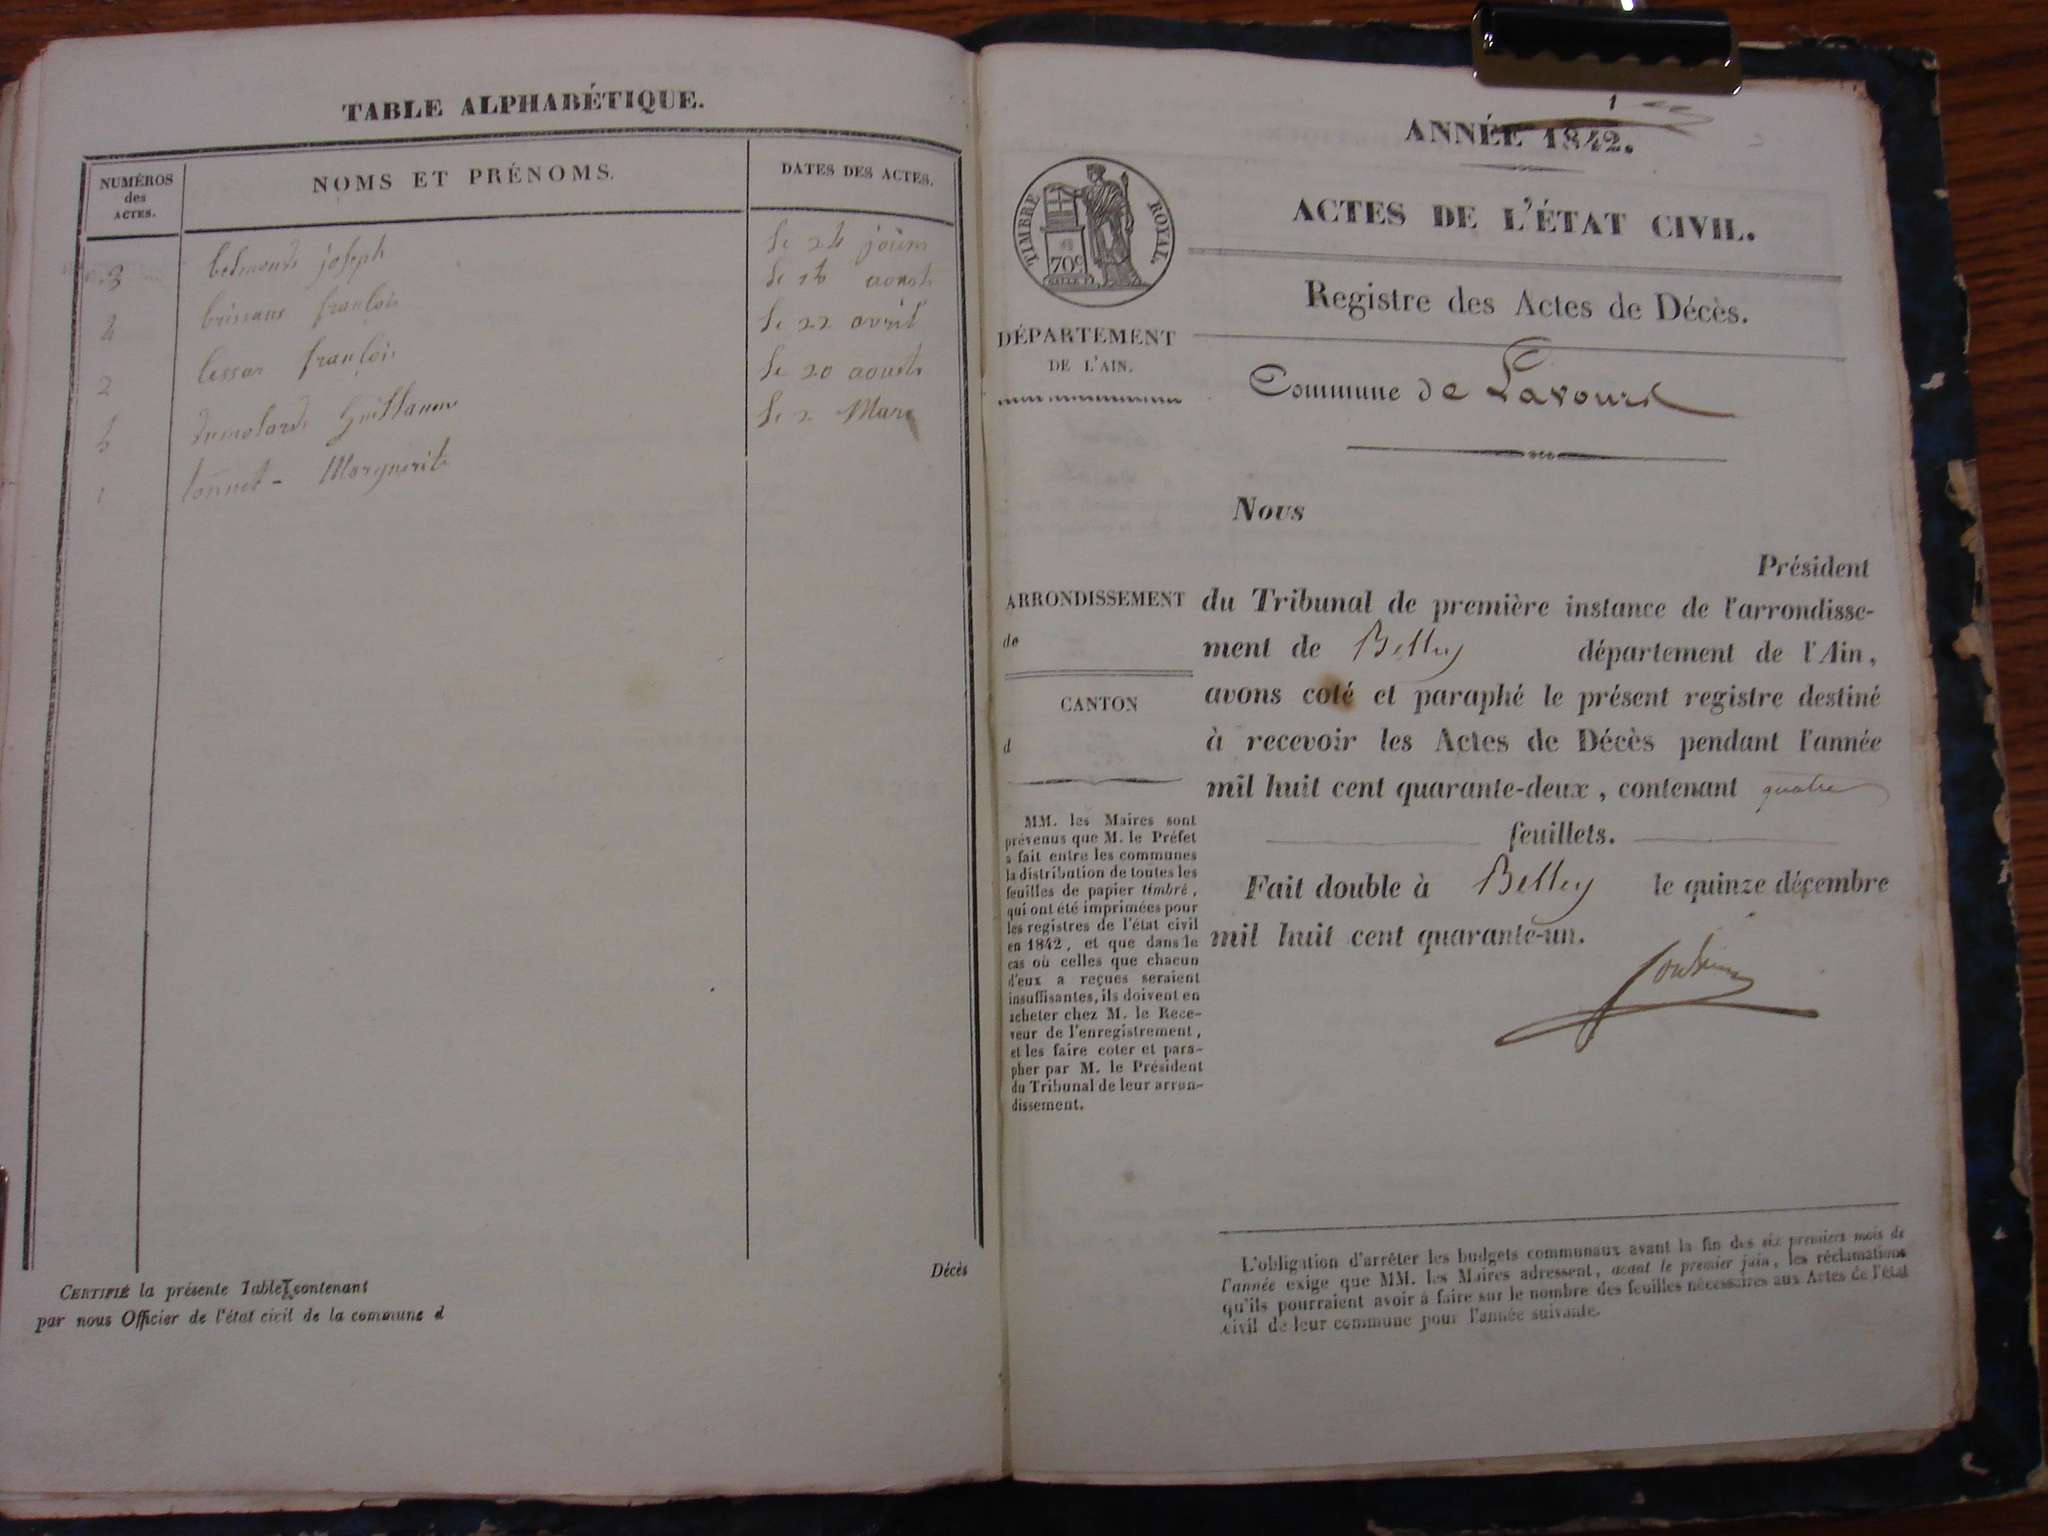 TABLE ALPHABÉTIQUE.
NUMÉROS des ACTES.
NOMS ET PRÉNOMS.
DATES DES ACTES.
3 joseph le 24
françois le 16 aoust
2 françois le 22 avril
Guillaume le 20 aoust
1 Marguerite le 2 Mars
Décès
CERTIFIÉ la présente Table contenant
par nous Officier de l'état civil de la commune d
1
ANNÉE 1842.
ACTES DE L'ÉTAT CIVIL.
Registre des Actes de Décès.
Commune de Lavours
TIMBRE ROYAL.
70c
DÉPARTEMENT
DE L'AIN.
ARRONDISSEMENT
de
CANTON
d
MM. les Maires sont
prévenus que M. le Préfet
a fait entre les communes
la distribution de toutes les
feuilles de papier timbré,
qui ont été imprimées pour
les registres de l'état civil
en 1842, et que dans le
cas où celles que chacun
d'eux a reçues seraient
insuffisantes, ils doivent en
acheter chez M. le Rece-
veur de l'enregistrement,
et les faire coter et para-
pher par M. le Président
du Tribunal de leur arron-
dissement.
Nous
Président
du Tribunal de première instance de l'arrondisse-
ment de Belley département de l'Ain,
avons coté et paraphé le présent registre destiné
à recevoir les Actes de Décès pendant l'année
mil huit cent quarante-deux, contenant quatre
feuillets.
Fait double à Belley le quinze décembre
mil huit cent quarante-un.
L'obligation d'arrêter les budgets communaux avant la fin des six premiers mois de
l'année exige que MM. les Maires adressent, avant le premier juin, les réclamations
qu'ils pourraient avoir à faire sur le nombre des feuilles nécessaires aux Actes de l'état
civil de leur commune pour l'année suivante.